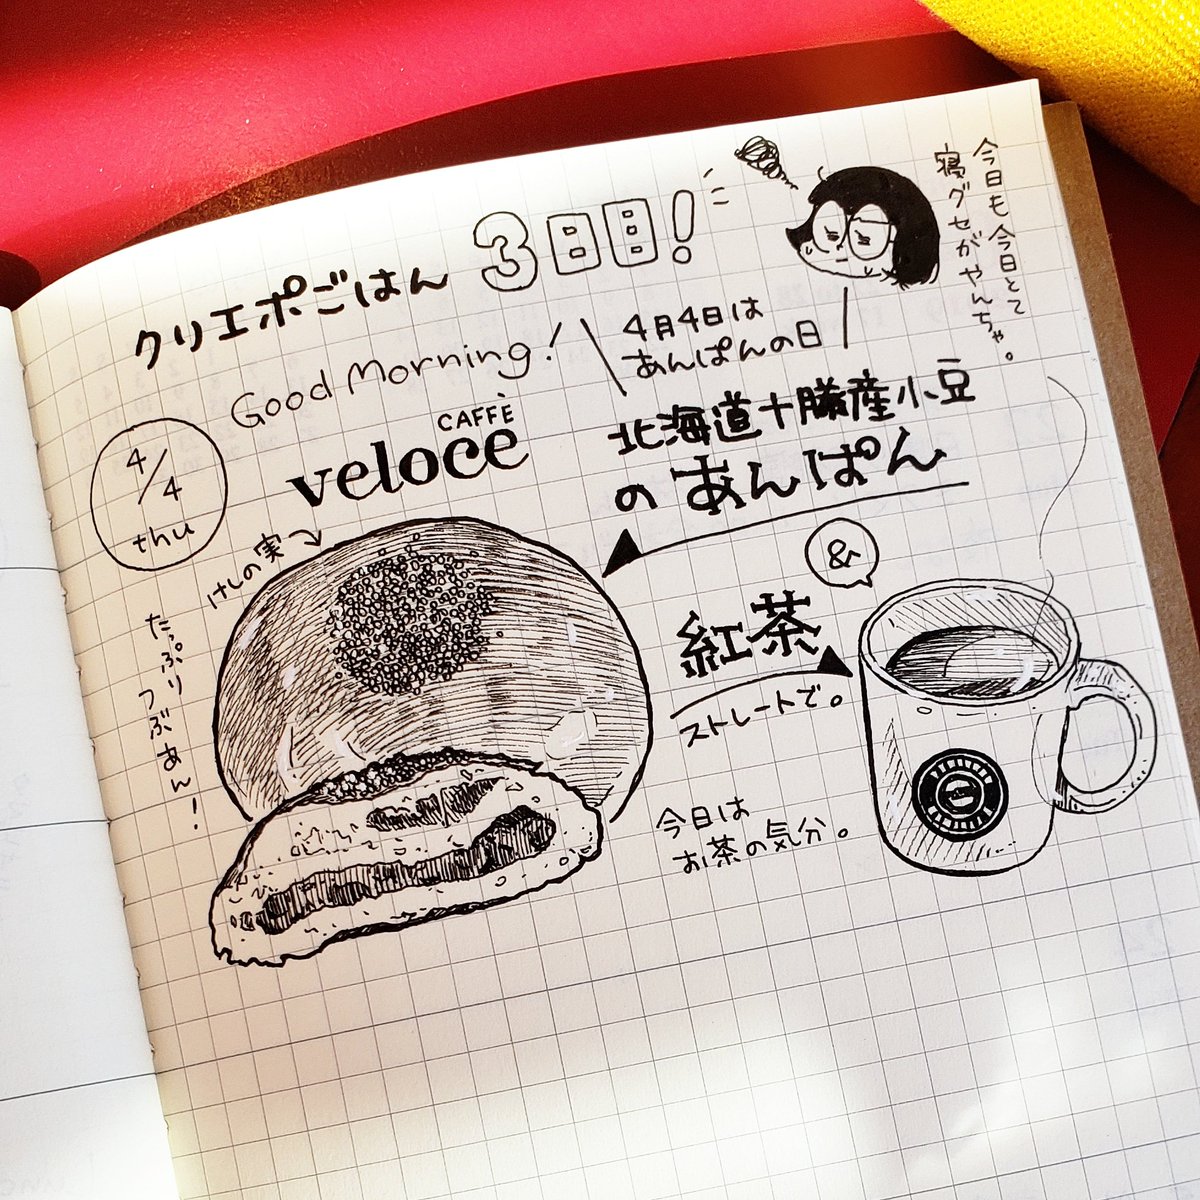 クリエポごはん 3日目!
今日も今日とて
寝グセがやんちゃ。
Good Morning!
4月4日は
あんぱんの日
4/4
thu
CAFFÈ
veloce
北海道十勝産小豆
のあんぱん
けしの実
たっぷり
つぶあん!
&
紅茶
ストレートで。
今日は
お茶の気分。